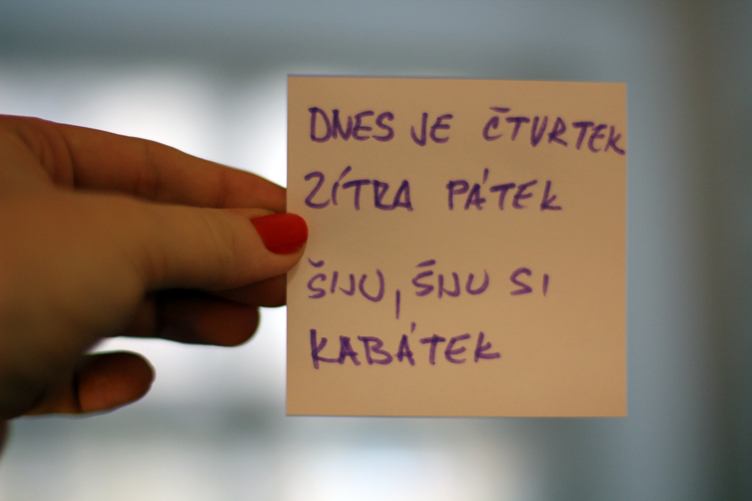 DNES JE ČTVRTEK
ZÍTRA PÁTEK
ŠIJU, ŠIJU SI
KABÁTEK